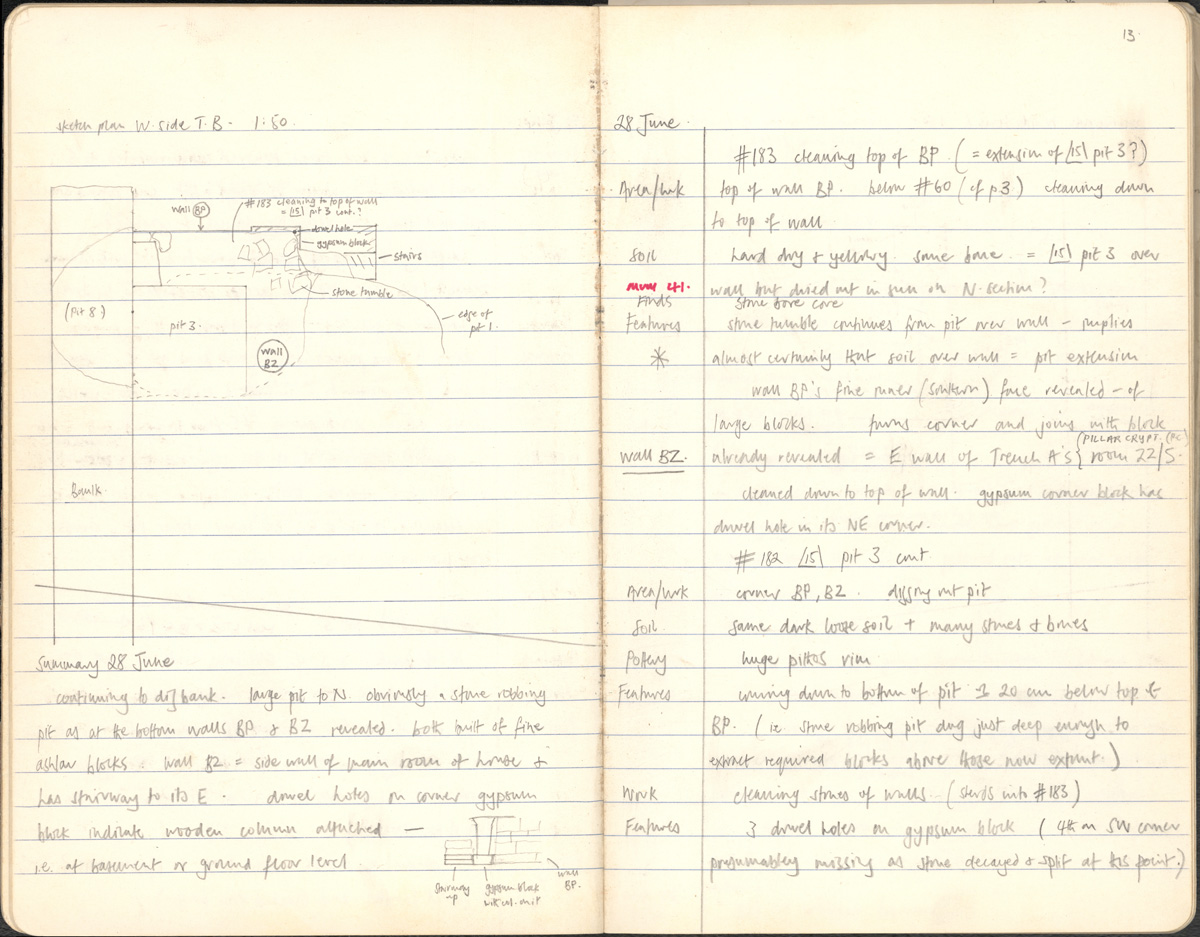 sketch plan W. side T.B. 1:50.
wall BP
#183 cleaning to top of wall
= /15\ pit 3 cont.?
dowel hole
gypsum block
stairs
stone tumble
(Pit 8)
pit 3.
edge of
pit 1.
wall
BZ
Baulk
Summary 28 June
continuing to dig bank. large pit to N. obviously a stone robbing
pit as at the bottom walls BP & BZ revealed. both built of fine
ashlar blocks. wall BZ = side wall of main room of house &
has stairway to its E. dowel holes on corner gypsum
block indicate wooden column attached —
i.e. at basement or ground floor level.
stairway
up
gypsum block
with col. on it
wall
BP.
13.
28 June.
#183 cleaning top of BP. (= extension of /15\ pit 3?)
Area/wk top of wall BP. below #60 (cf p3) cleaning down
to top of wall
Soil hard dry & yellowy. some bone. = /15\ pit 3 over
41. wall but dried out in sun on N. section?
Finds stone bore core
Features stone tumble continues from pit over wall – implies
* almost certainly that soil over wall = pit extension
wall BP's fine inner (southern) face revealed – of
large blocks. turns corner and joins with block
(PILLAR CRYPT. (PC)
wall BZ. already revealed = E wall of Trench A's { room 22/5.
cleaned down to top of wall. gypsum corner block has
dowel hole in its NE corner.
#182 /15\ pit 3 cont
Area/wrk corner BP, BZ. digging out pit
Soil same dark loose soil + many stones & bones
Pottery huge pithos rim
Features coming down to bottom of pit ± 20 cm below top of
BP. (i.e. stone robbing pit dug just deep enough to
extract required blocks above those now extant.)
Work cleaning stones of walls (sherds into #183)
Features 3 dowel holes on gypsum block (4th on SW corner
presumably missing as stone decayed & split at this point.)